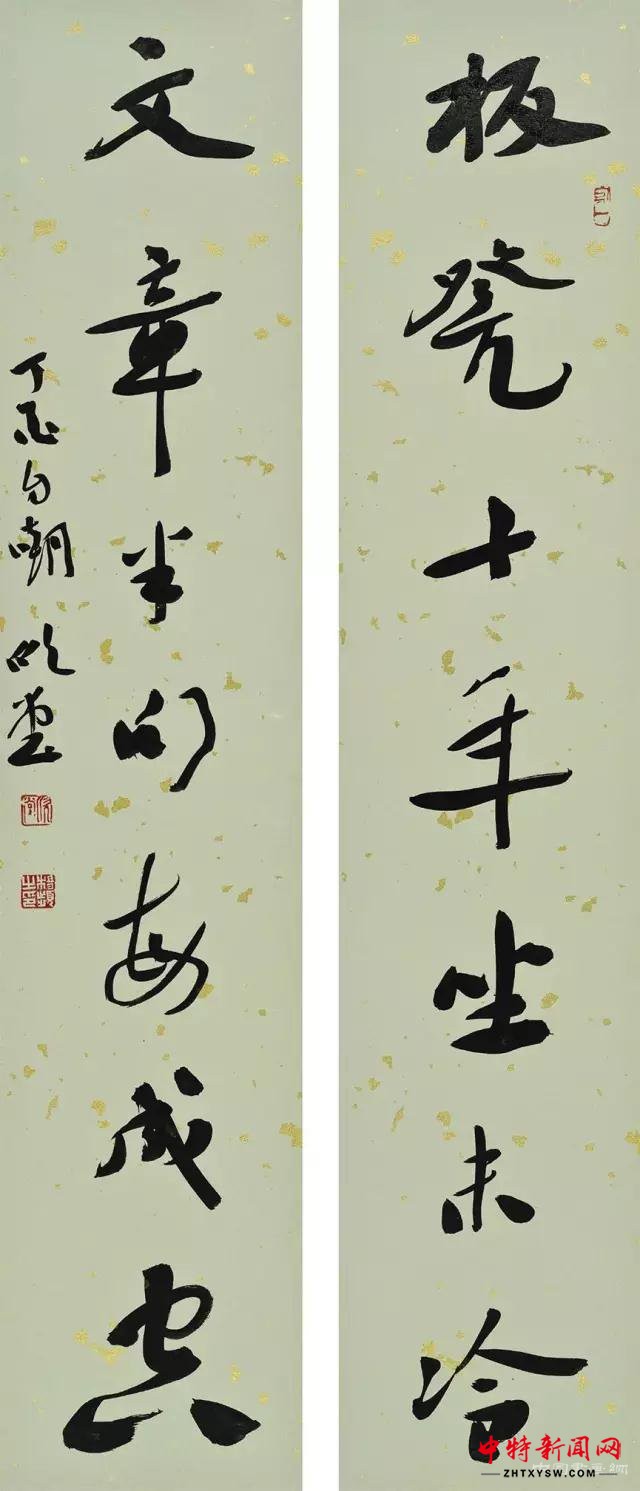 板凳十年坐未冷
文章半句每成空
丁酉自嘲
中特新闻网
ZHTXYSW.COM